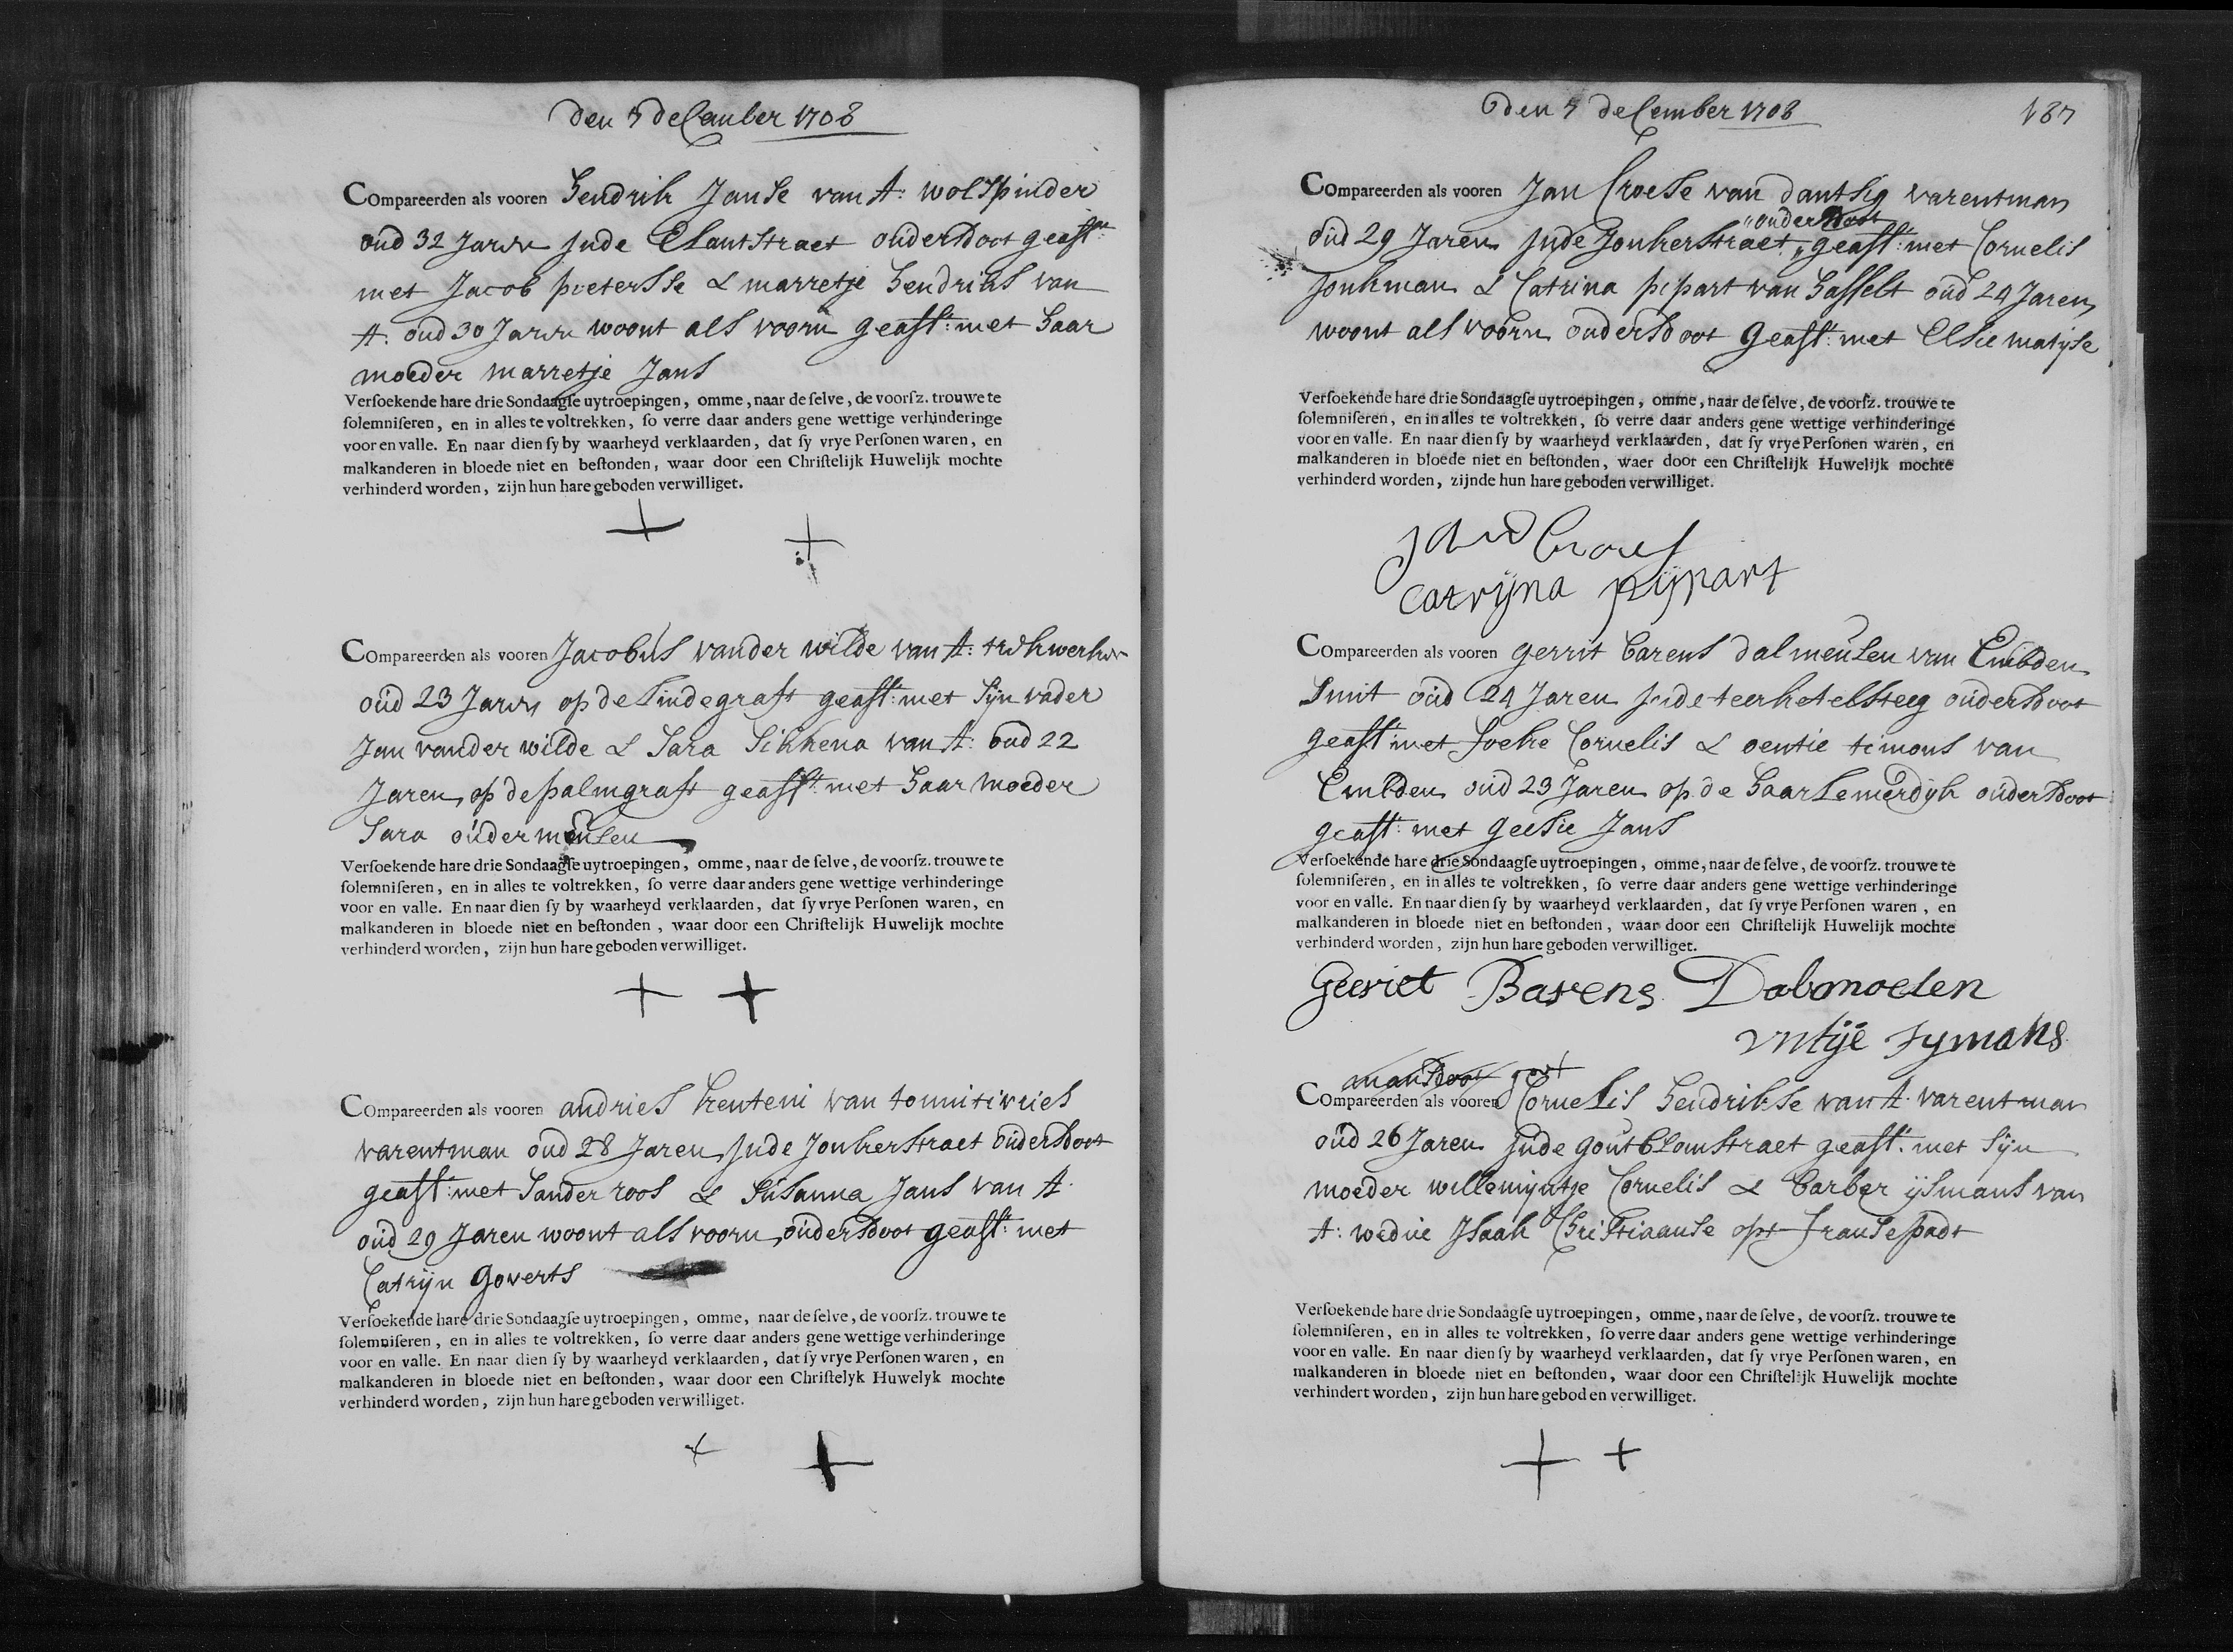 Den 7 deCember 1708
Compareerden als vooren Hendrik Janse van A: wolspinder
oud 32 Jaren Inde Elantstraet ouders doot geast:
met Jacob pietersse & marretje Hendriks van
A: oud 30 Jaren woont als voorn geast: met haar
moeder marretje Jans
Versoekende hare drie Sondaagse uytroepingen, omme, naar de selve, de voorsz. trouwe te
solemniseren, en in alles te voltrekken, so verre daar anders gene wettige verhinderinge
voor en valle. En naar dien sy by waarheyd verklaarden, dat sy vrye Personen waren, en
malkanderen in bloede niet en bestonden, waar door een Christelijk Huwelijk mochte
verhinderd worden, zijn hun hare geboden verwilliget.
Compareerden als vooren Jacobus vander wilde van A: trekwerker
oud 23 Jaren op de Lindegraft geast: met Sijn vader
Jan vander wilde & Sara Sikkena van A: oud 22
Jaren, op de palmgraft geast: met haar moeder
Sara oudermeulen
Versoekende hare drie Sondaagse uytroepingen, omme, naar de selve, de voorsz. trouwe te
solemniseren, en in alles te voltrekken, so verre daar anders gene wettige verhinderinge
voor en valle. En naar dien sy by waarheyd verklaarden, dat sy vrye Personen waren, en
malkanderen in bloede niet en bestonden, waar door een Christelijk Huwelijk mochte
verhinderd worden, zijn hun hare geboden verwilliget.
Compareerden als vooren andries van
varentman oud 28 Jaren, Inde Jonkerstraet ouders doot
geast: met Sander roos & Susanna Jans van A:
oud 29 Jaren woont als voorn, ouders doot geast: met
Catrijn Goverts
Versoekende hare drie Sondaagse uytroepingen, omme, naar de selve, de voorsz. trouwe te
solemniseren, en in alles te voltrekken, so verre daar anders gene wettige verhinderinge
voor en valle. En naar dien sy by waarheyd verklaarden, dat sy vrye Personen waren, en
malkanderen in bloede niet en bestonden, waar door een Christelyk Huwelyk mochte
verhinderd worden, zijn hun hare geboden verwilliget.
den 7 deCember 1708
187
Compareerden als vooren Jan Croese van dantsig varentman
ouders doot
oud 29 Jaren Inde Jonkerstraet, geast: met Cornelis
Jonkman & Catrina pipart van Hasselt oud 24 Jaren,
woont als voorn ouders doot geast: met Elsie matijse
Versoekende hare drie Sondaagse uytroepingen, omme, naar de selve, de voorsz. trouwe te
solemniseren, en in alles te voltrekken, so verre daar anders gene wettige verhinderinge
voor en valle. En naar dien sy by waarheyd verklaarden, dat sy vrye Personen waren, en
malkanderen in bloede niet en bestonden, waer door een Christelijk Huwelijk mochte
verhinderd worden, zijnde hun hare geboden verwilliget.
Jan Croes
Catrijna pijpart
Compareerden als vooren gerrit barens dalmeulen van Embden
Smit oud 24 Jaren Inde teerketelsteeg ouders doot
geast: met foeke Cornelis & oentie timons van
Embden oud 23 Jaren op de Haarlemerdijk ouders doot
geast: met geesie Jans
Versoekende hare drie Sondaagse uytroepingen, omme, naar de selve, de voorsz. trouwe te
solemniseren, en in alles te voltrekken, so verre daar anders gene wettige verhinderinge
voor en valle. En naar dien sy by waarheyd verklaarden, dat sy vrye Personen waren, en
malkanderen in bloede niet en bestonden, waar door een Christelijk Huwelijk mochte
verhinderd worden, zijn hun hare geboden verwilliget.
Geeriet Barens Dalomoelen
vntije tymans
Compareerden als vooren Cornelis Hendrikse van A: varentman
oud 26 Jaren Inde goutblomstraet geast: met Sijn
moeder willemijntje Cornelis & barber ijsmans van
A: wedue Isaak Christiaanse opt franse padt
Versoekende hare drie Sondaagse uytroepingen, omme, naar de selve, de voorsz. trouwe te
solemniseren, en in alles te voltrekken, so verre daar anders gene wettige verhinderinge
voor en valle. En naar dien sy by waarheyd verklaarden, dat sy vrye Personen waren, en
malkanderen in bloede niet en bestonden, waar door een Christelijk Huwelijk mochte
verhindert worden, zijn hun hare geboden verwilliget.